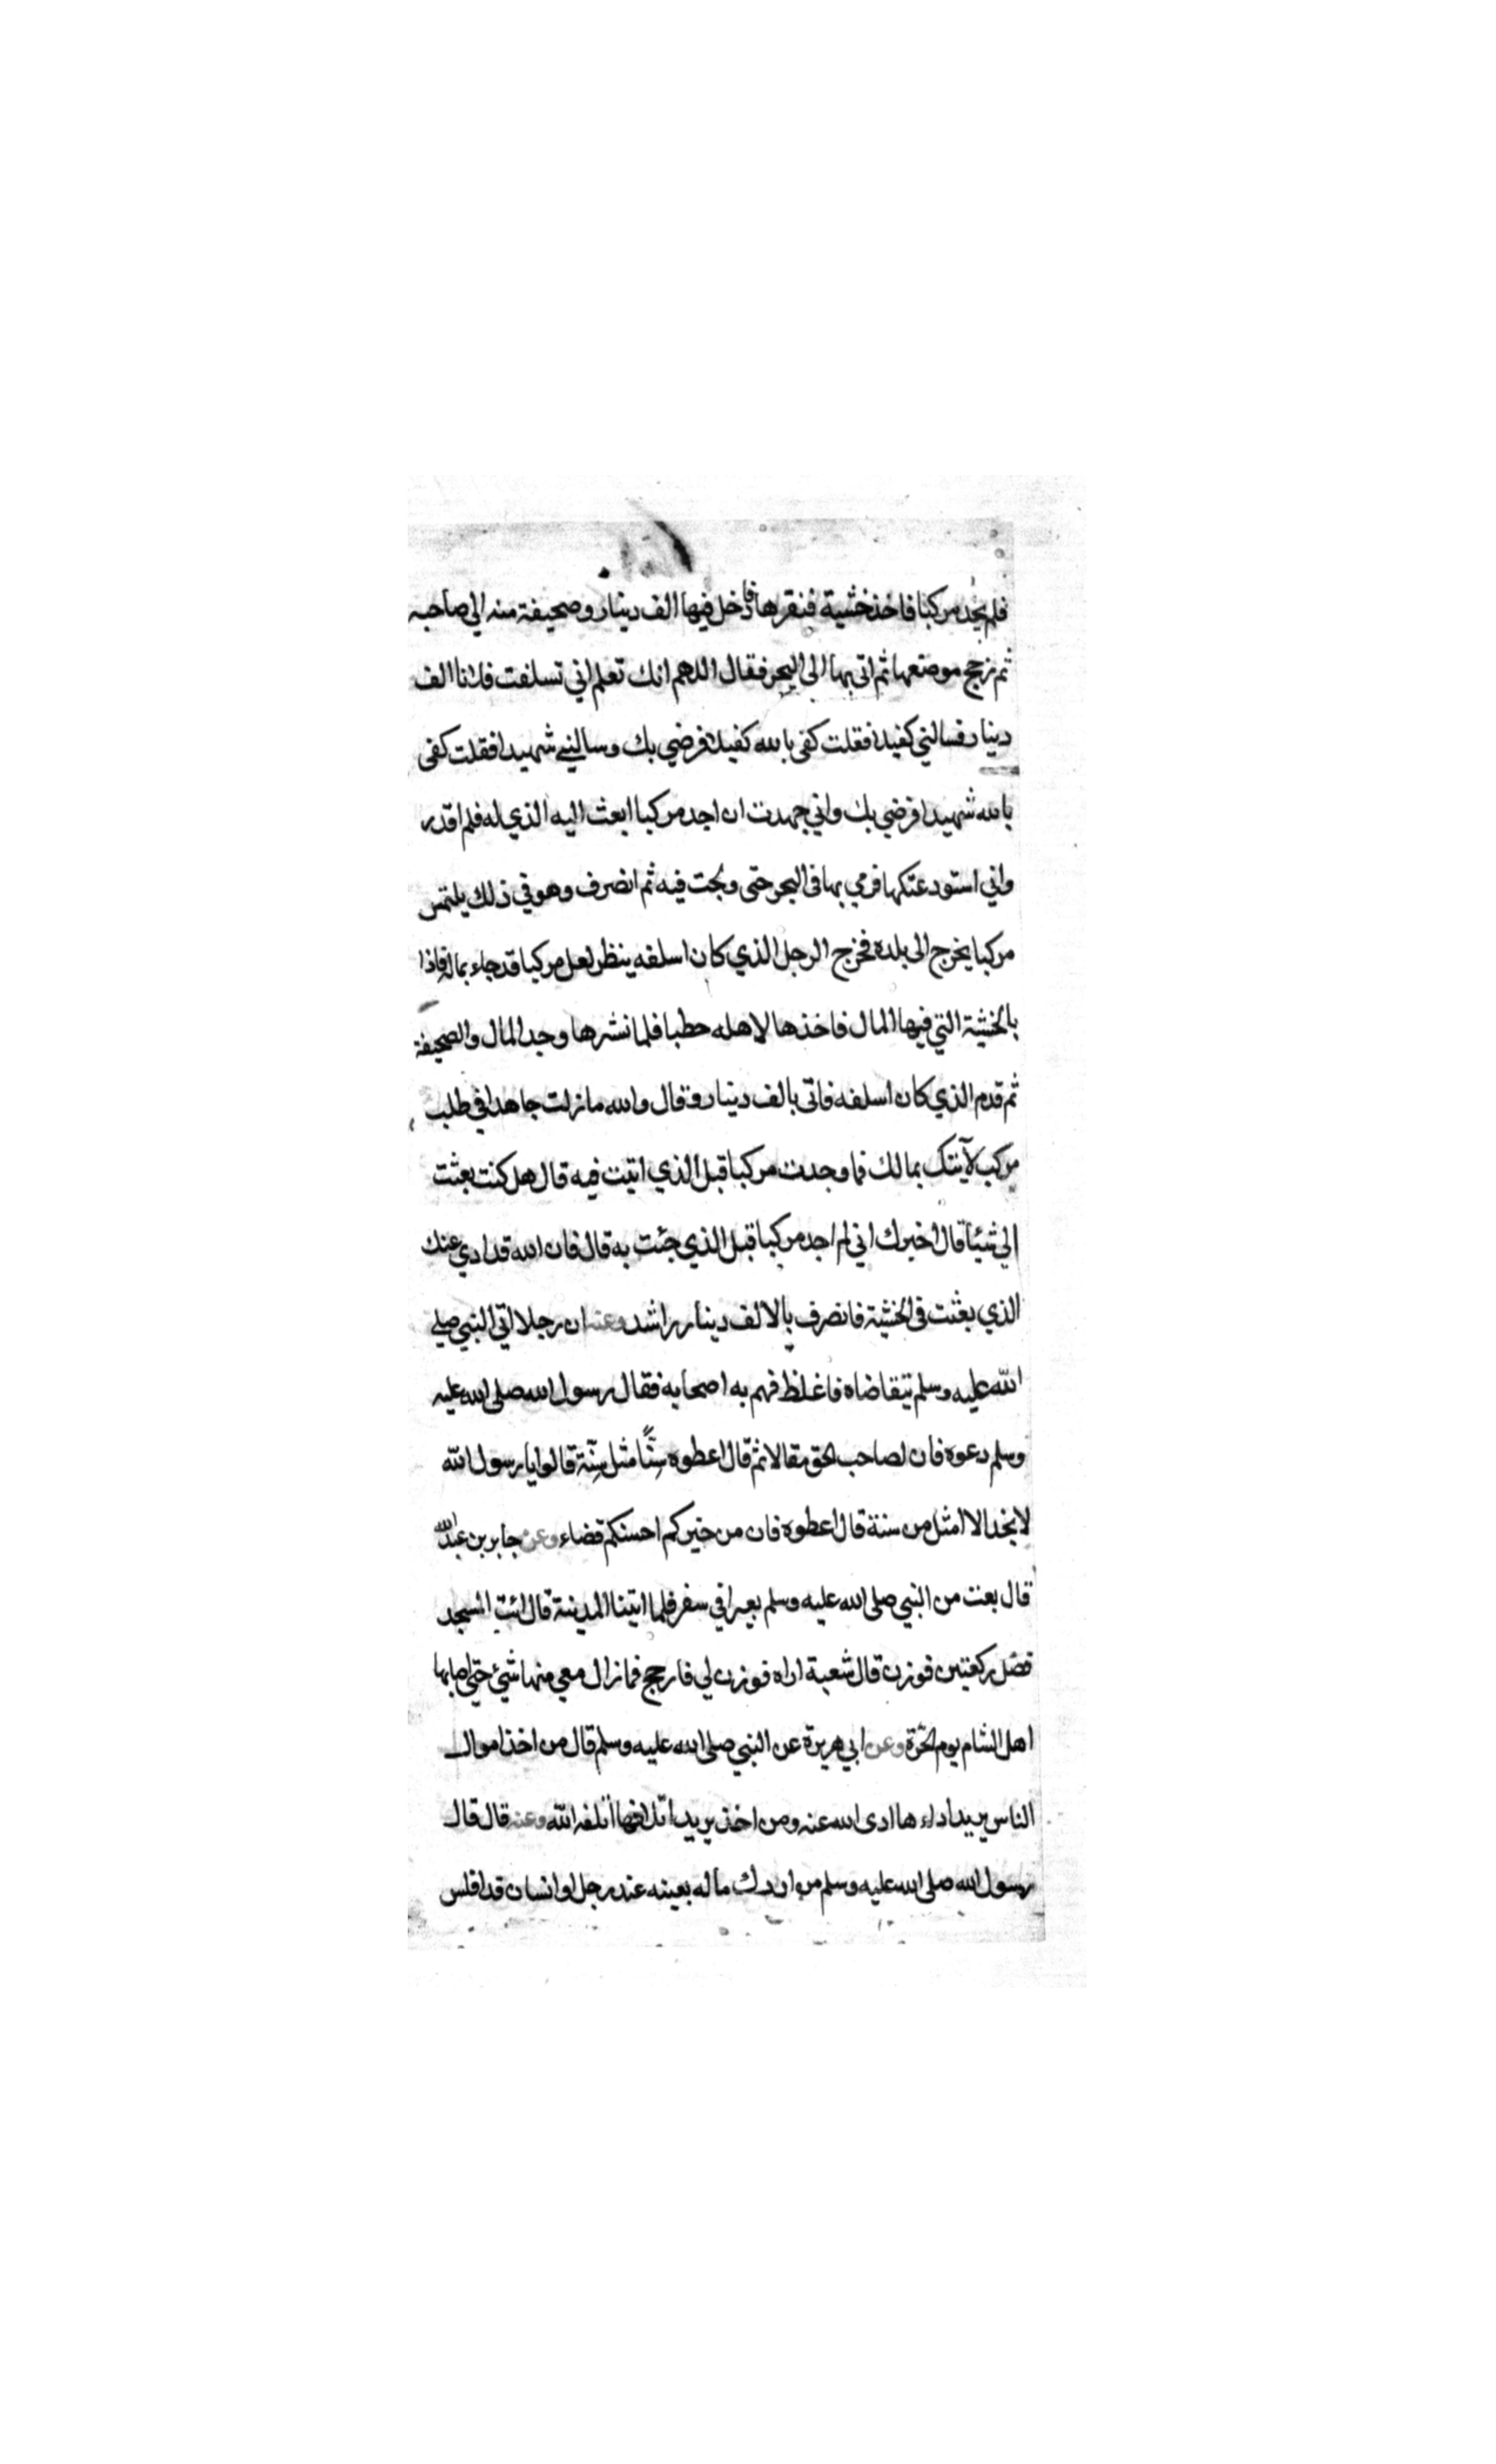 فلم يجد مركبا فاخذ خشبة فنقرها فادخل فيها الف دينار وصحيفة منه الي صاحبه
ثم زجج موضعها ثم اتى بها الى البحر فقال اللهم انك تعلم اني تسلفت فلانا الف
دينار فسالني كفيلا فقلت كفى بالله كفيلا فرضي بك وسالني شهيدا فقلت كفى
بالله شهيدا فرضي بك واني جهدت ان اجد مركبا ابعث اليه الذي له فلم اقدر
واني استودعتكها فرمي بها في البحر حتى ولجت فيه ثم انصرف وهو في ذلك يلتمس
مركبا يخرج الى بلده فخرج الرجل الذي كان اسلفه ينظر لعل مركبا قد جاء بماله فاذا
بالخشبة التي فيها المال فاخذها لاهله حطبا فلما نشرها وجد المال والصحيفة
ثم قدم الذي كان اسلفه فاتى بالف دينار وقال والله ما زلت جاهدا في طلب
مركب لآيتك بمالك فما وجدت مركبا قبل الذي اتيت فيه قال هل كنت بعثت
الي شيئا قال اخبرك اني لم اجد مركبا قبل الذي جئت به قال فان الله قد ادي عنك
الذي بعثت في الخشبة فانصرف بالالف دينار راشد وعنه ان رجلا اتي النبي صلي
الله عليه وسلم يتقاضاه فاغلظ فهم به اصحابه فقال رسول الله صلى الله عليه
وسلم دعوه فان لصاحب الحق مقالا ثم قال اعطوه سِنًّا مثل سِنِّة قالوا يا رسول الله
لا نجد الا امثل من سنة قال اعطوه فان من خيركم احسنكم قضاء وعن جابر بن عبد الله
قال بعت من النبي صلى الله عليه وسلم بعيرا في سفر فلما اتينا المدينة قال ائت المسجد
فصل ركعتين فوزن قال شعبة اراه فوزن لي فارجح فما زال معي منها شيئ حتي اصابها
اهل الشام يوم الحَرّة وعن ابي هريرة عن النبي صلى الله عليه وسلم قال من اخذ اموال
الناس يريد اداءها ادى الله عنه ومن اخذ يريد اتلافها اتلفه الله وعنه قال قال
رسول الله صلى الله عليه وسلم من ادرك ماله بعينه عند رجل او انسان قد افلس